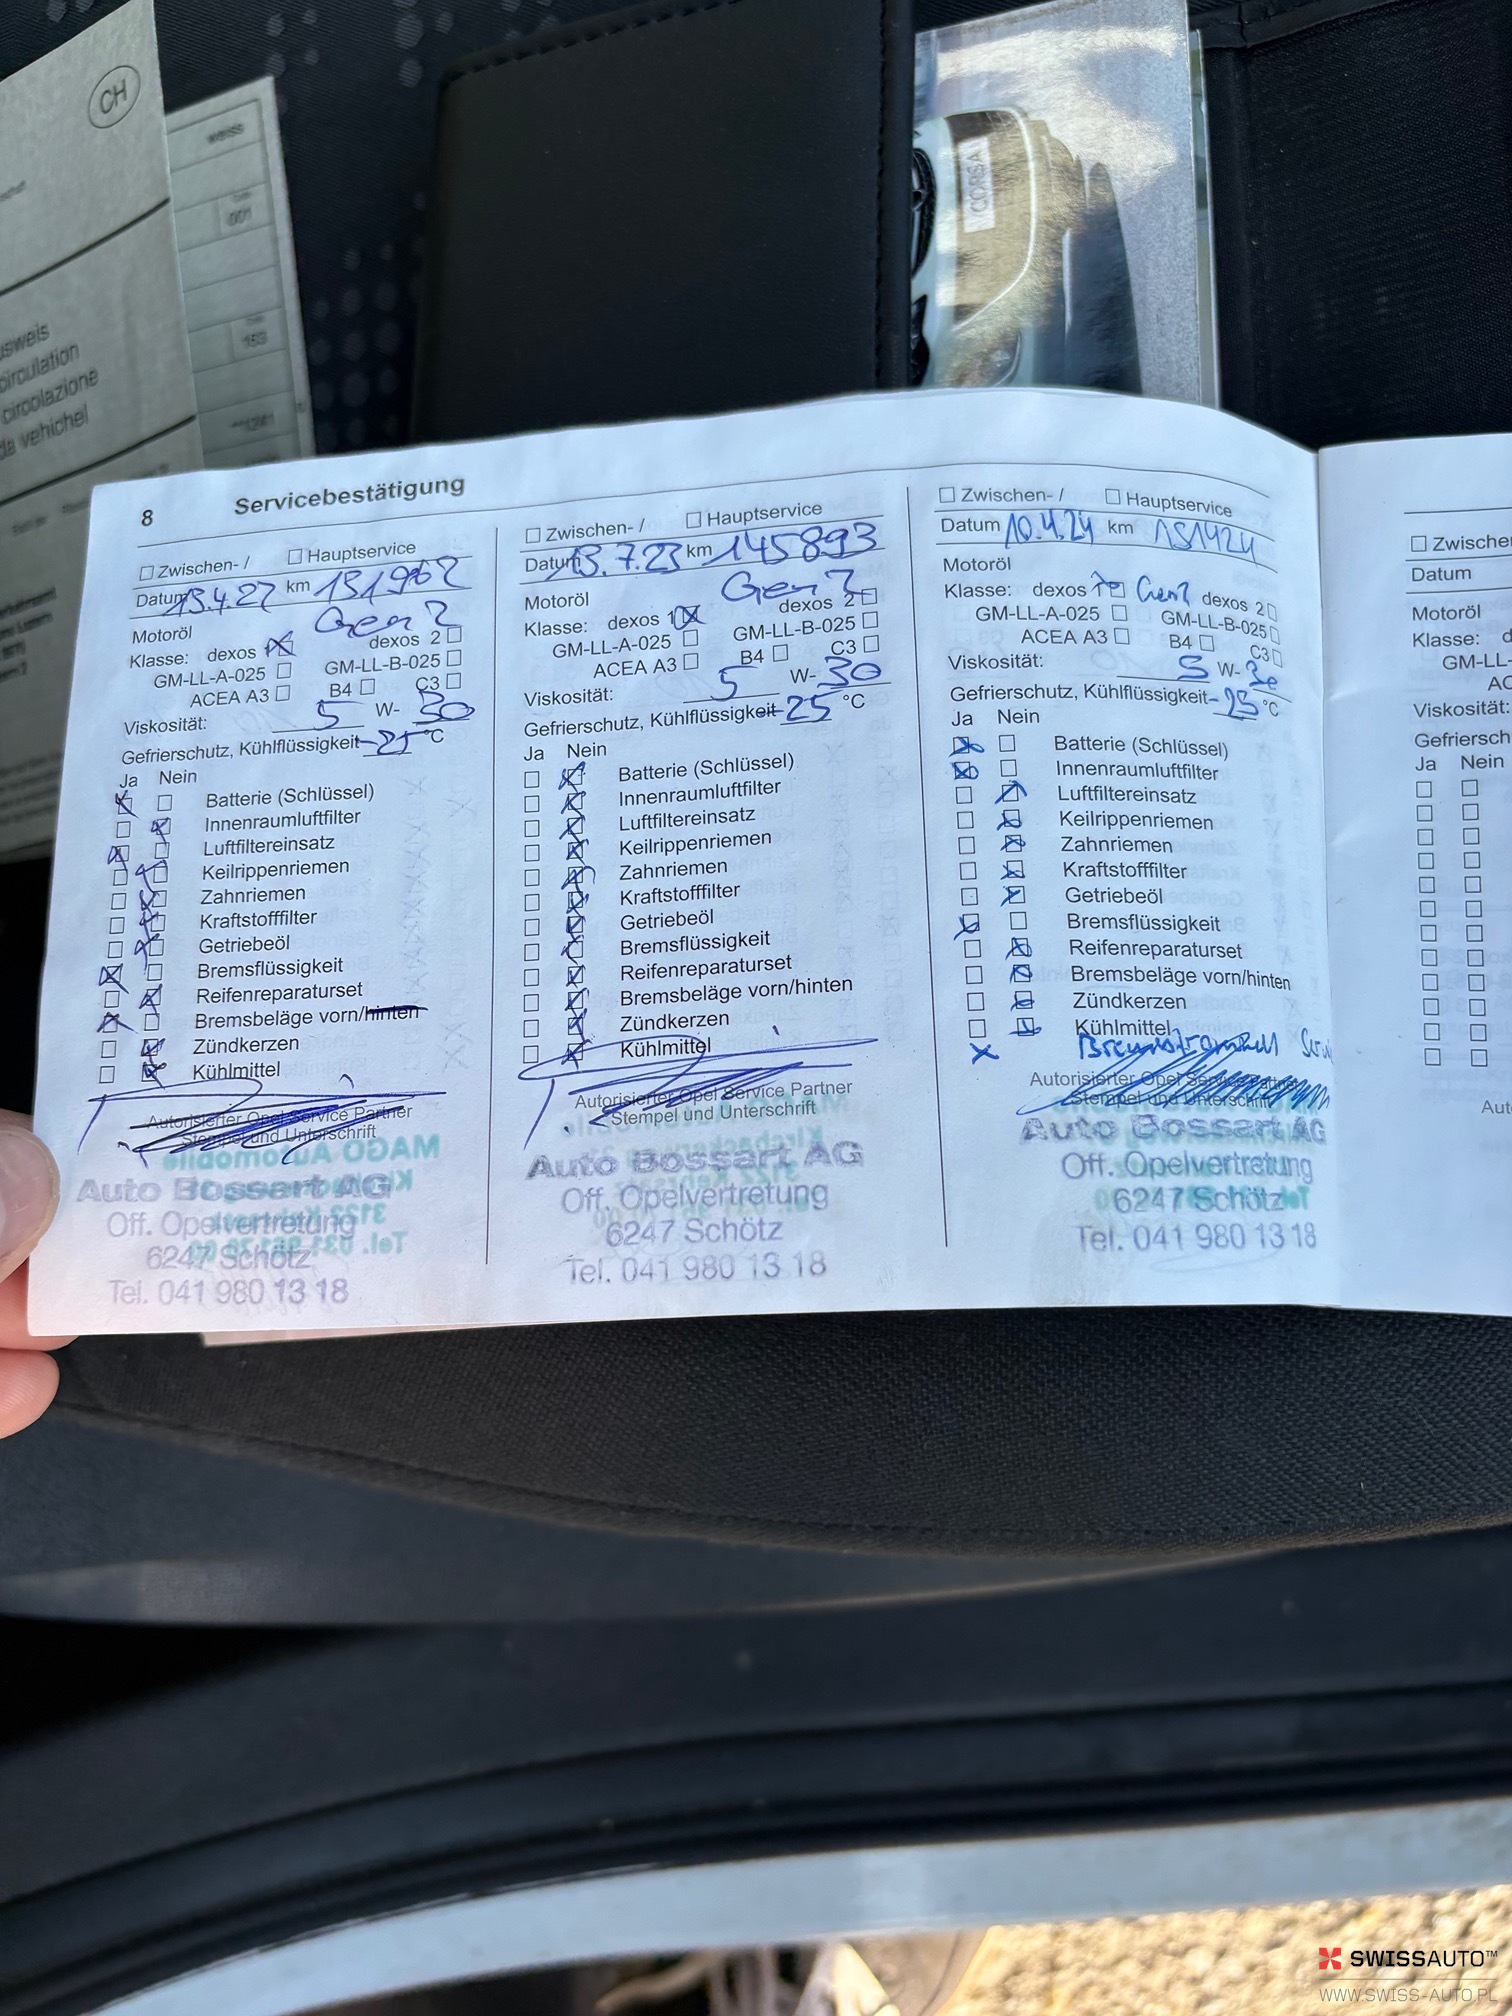 CH
weiss
001
153
usweis
circulation
circolazione
da vehichel
CORSA
8 Servicebestätigung
Zwischen- / Hauptservice
Datum 13.4.22 km 131962
Motoröl Gen 2
Klasse: dexos 1 dexos 2
GM-LL-A-025 GM-LL-B-025
ACEA A3 B4 C3
Viskosität: 5 W- 30
Gefrierschutz, Kühlflüssigkeit -25 °C
Ja Nein
Batterie (Schlüssel)
Innenraumluftfilter
Luftfiltereinsatz
Keilrippenriemen
Zahnriemen
Kraftstofffilter
Getriebeöl
Bremsflüssigkeit
Reifenreparaturset
Bremsbeläge vorn/hinten
Zündkerzen
Kühlmittel
Autorisierter Opel Service Partner
Stempel und Unterschrift
MAGO Automobile
Auto Bossart AG
Off. Opelvertretung
6247 Schötz
Tel. 041 980 13 18
Zwischen- / Hauptservice
Datum 13.7.23 km 145893
Motoröl Gen 2
Klasse: dexos 1 dexos 2
GM-LL-A-025 GM-LL-B-025
ACEA A3 B4 C3
Viskosität: 5 W- 30
Gefrierschutz, Kühlflüssigkeit -25 °C
Ja Nein
Batterie (Schlüssel)
Innenraumluftfilter
Luftfiltereinsatz
Keilrippenriemen
Zahnriemen
Kraftstofffilter
Getriebeöl
Bremsflüssigkeit
Reifenreparaturset
Bremsbeläge vorn/hinten
Zündkerzen
Kühlmittel
Autorisierter Opel Service Partner
Stempel und Unterschrift
Auto Bossart AG
Off. Opelvertretung
6247 Schötz
Tel. 041 980 13 18
Zwischen- / Hauptservice
Datum 10.4.24 km 151424
Motoröl
Klasse: dexos 1 Gen 2 dexos 2
GM-LL-A-025 GM-LL-B-025
ACEA A3 B4 C3
Viskosität: 5 W- 30
Gefrierschutz, Kühlflüssigkeit -25 °C
Ja Nein
Batterie (Schlüssel)
Innenraumluftfilter
Luftfiltereinsatz
Keilrippenriemen
Zahnriemen
Kraftstofffilter
Getriebeöl
Bremsflüssigkeit
Reifenreparaturset
Bremsbeläge vorn/hinten
Zündkerzen
Kühlmittel
Autorisierter Opel Service Partner
Stempel und Unterschrift
Auto Bossart AG
Off. Opelvertretung
6247 Schötz
Tel. 041 980 13 18
Zwischen
Datum
Motoröl
Klasse: d
GM-LL-
AC
Viskosität:
Gefriersch
Ja Nein
Aut
SWISSAUTO™
WWW.SWISS-AUTO.PL